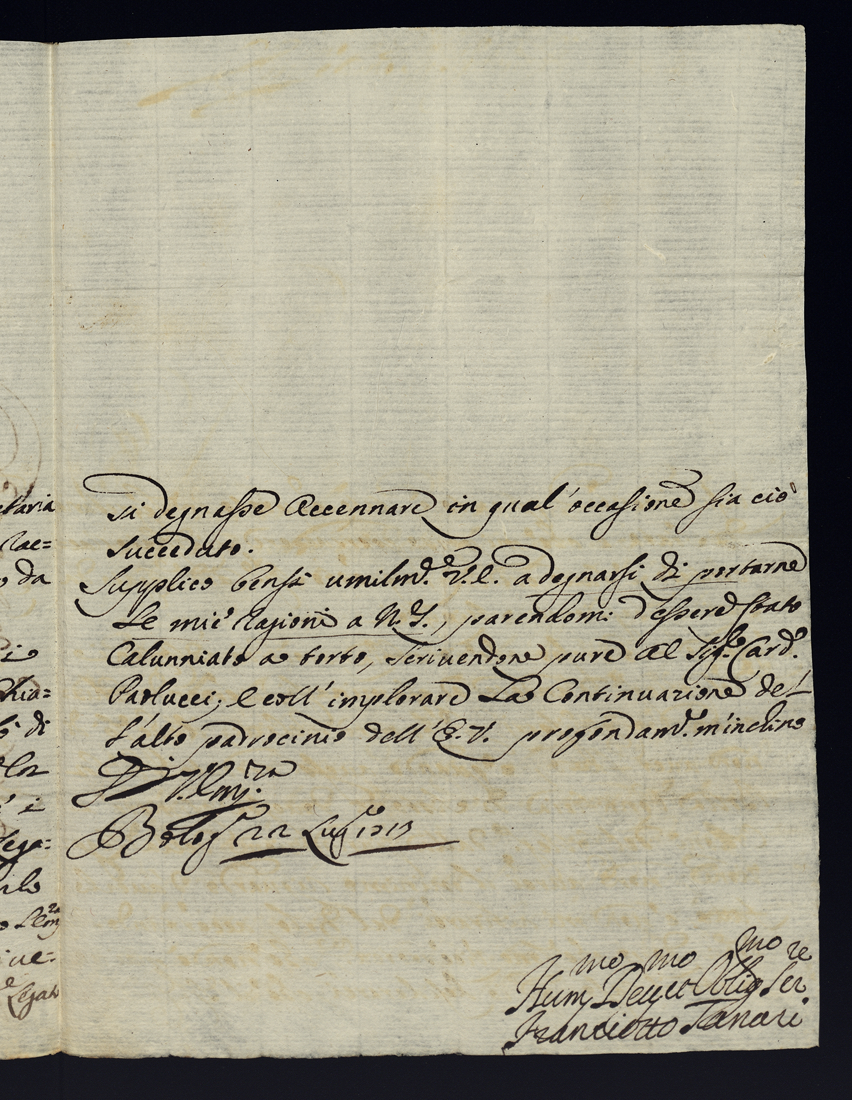 etaria
rae=
o da
Chia=
di
Lega=
rlo
ive=
Legato
si degnasse accennare in qual' occasione sia ciò
succeduto.
Supplico bensì umilm.e V.E. a degnarsi di portarne
le mie ragioni a N.S., parendomi d'essere stato
Calunniato a torto, scrivendone pure al Sig.r Card.
Paolucci, e coll' implorare la Continuazione del
l'alto padrocinio dell' E.V. profondam.e m'inchino
Di V. Em.za
Bolog.a 22 Lug.o 1713
Hum.mo Dev.mo Oblig.mo Ser.re
Franciotto Tanari